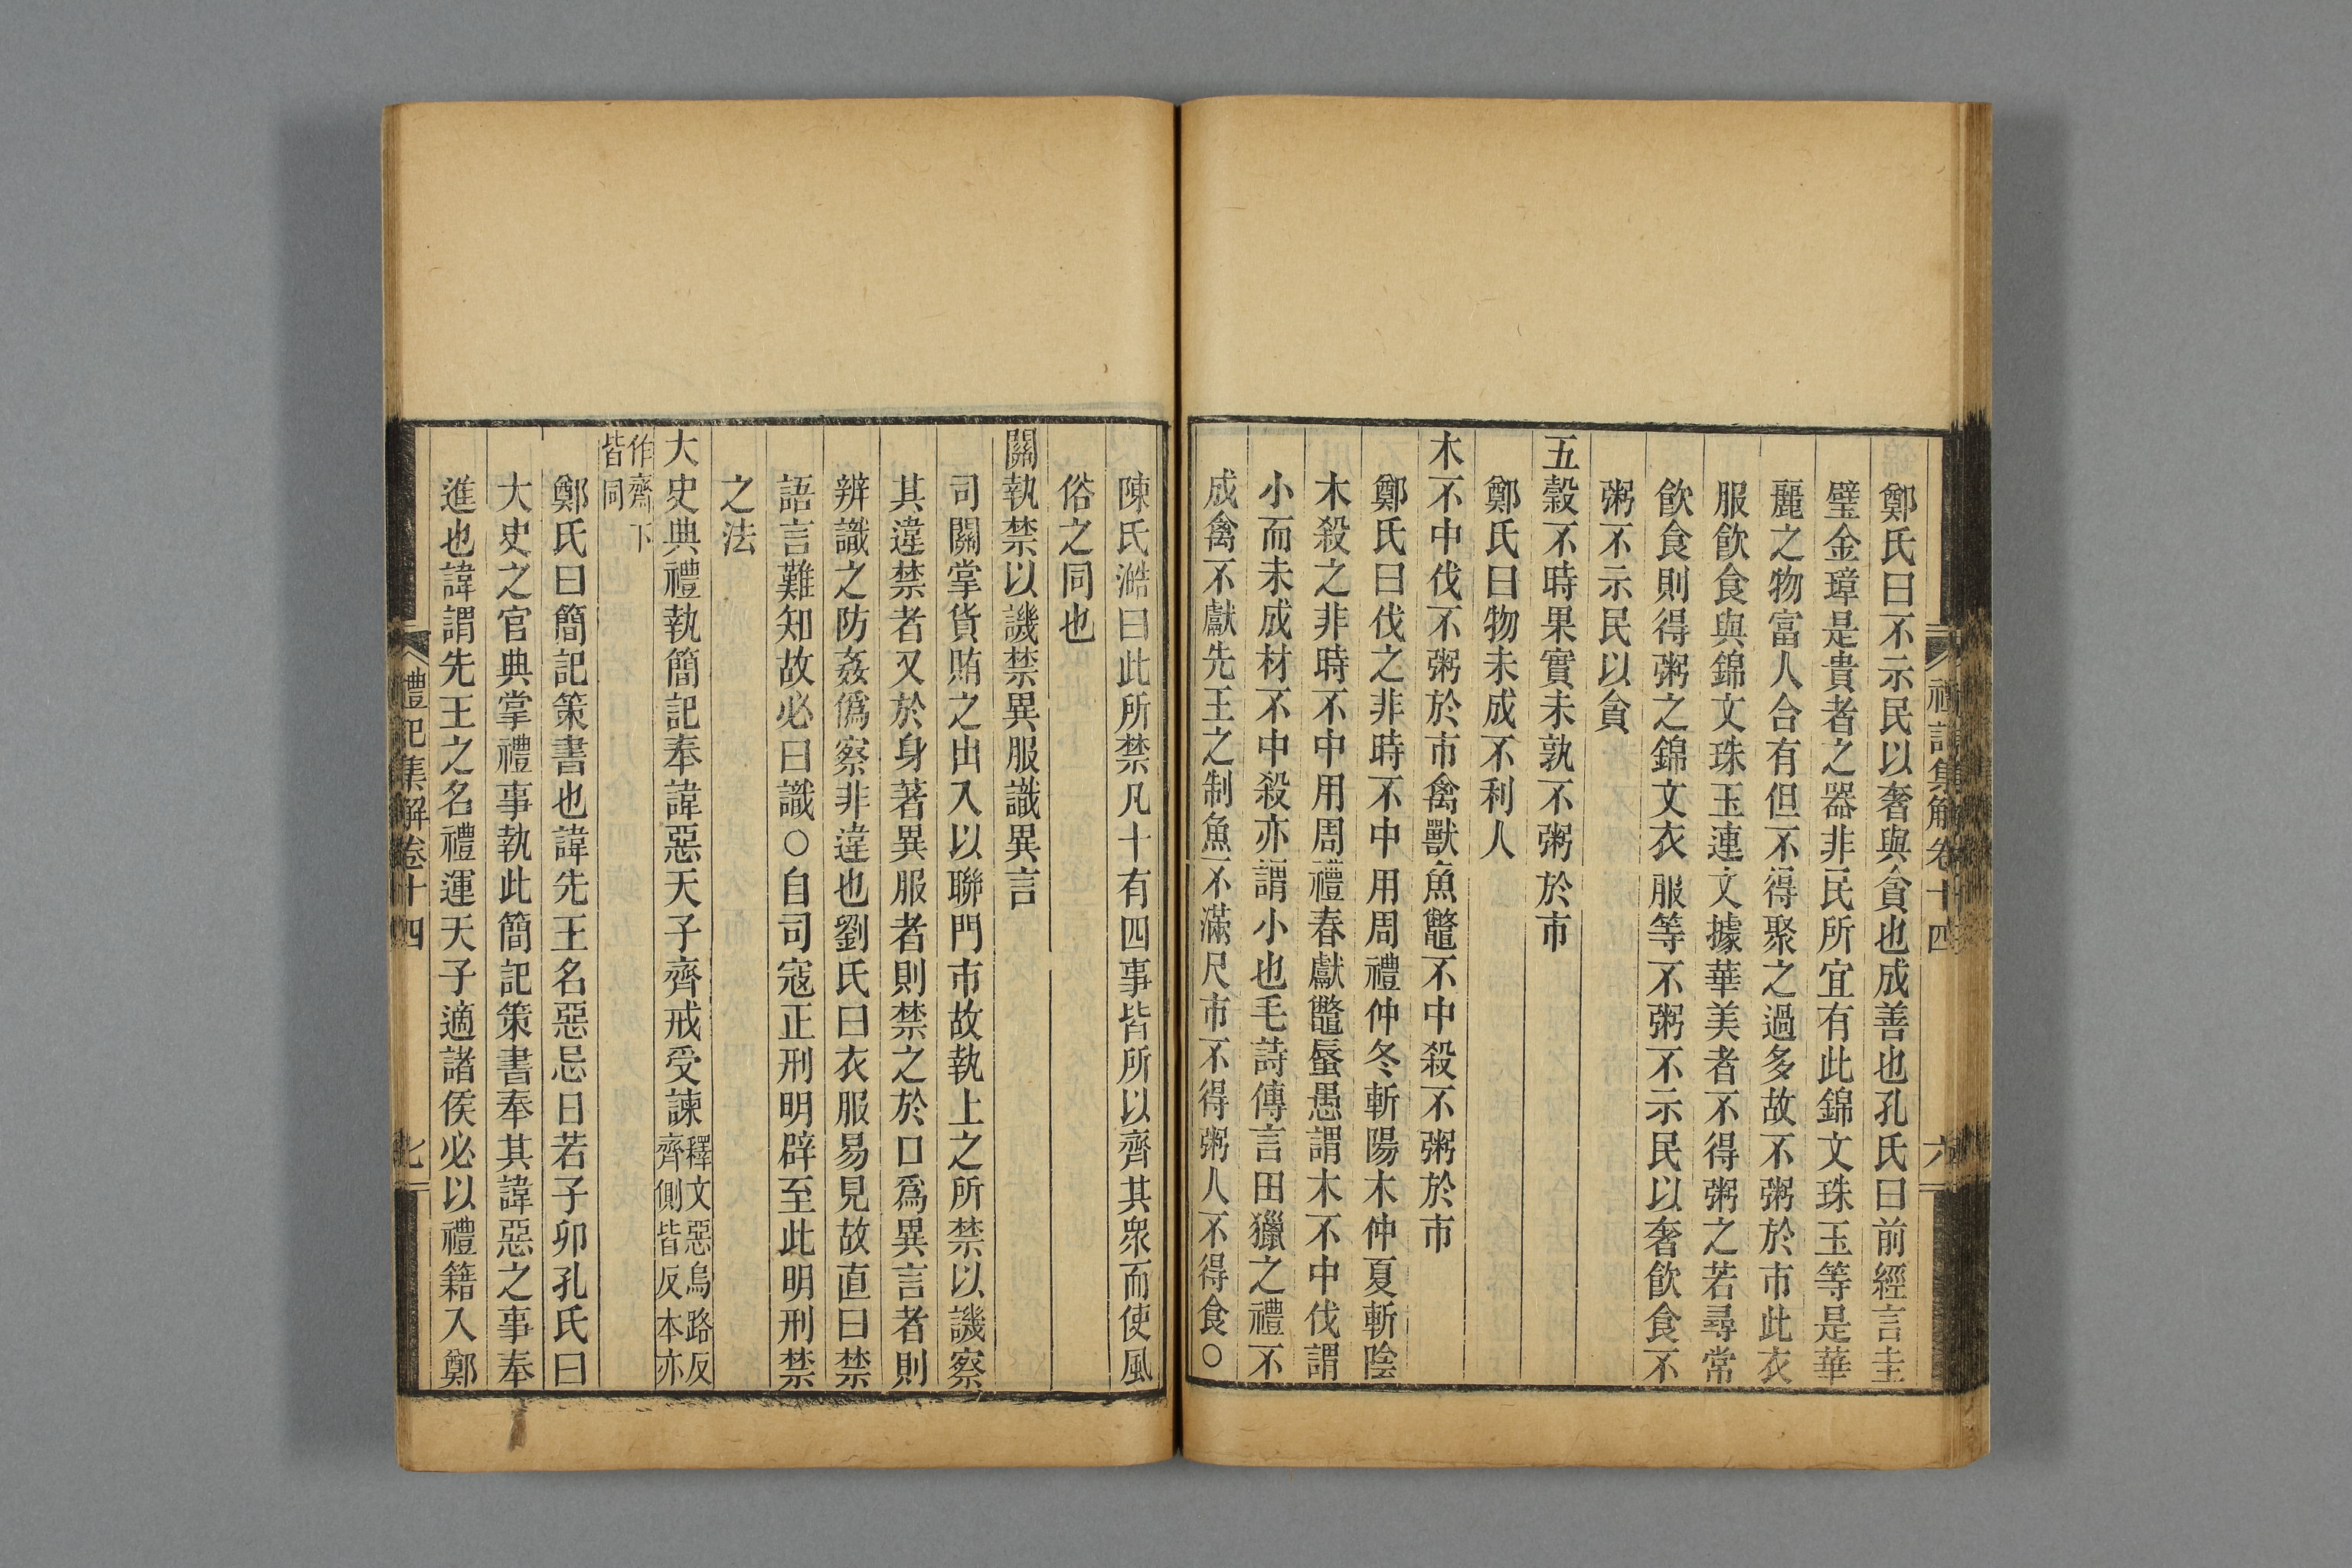 禮記集解卷十四
六
鄭氏曰不示民以奢與貪也成善也孔氏曰前經言圭
璧金璋是貴者之器非民所宜有此錦文珠玉等是華
麗之物富人合有但不得聚之過多故不粥於市此衣
服飲食與錦文珠玉連文據華美者不得粥之若尋常
飲食則得粥之錦文衣服等不粥不示民以奢飲食不
粥不示民以貪
五穀不時果實未孰不粥於市
鄭氏曰物未成不利人
木不中伐不粥於市禽獸魚鼈不中殺不粥於市
鄭氏曰伐之非時不中用周禮仲冬斬陽木仲夏斬陰
木殺之非時不中用周禮春獻鼈蜃愚謂木不中伐謂
小而未成材不中殺亦謂小也毛詩傳言田獵之禮不
成禽不獻先王之制魚不滿尺市不得粥人不得食○
陳氏澔曰此所禁凡十有四事皆所以齊其衆而使風
俗之同也
關執禁以譏禁異服識異言
司關掌貨賄之出入以聯門市故執上之所禁以譏察
其違禁者又於身著異服者則禁之於口爲異言者則
辨識之防姦僞察非違也劉氏曰衣服易見故直曰禁
語言難知故必曰識○自司寇正刑明辟至此明刑禁
之法
大史典禮執簡記奉諱惡天子齊戒受諫釋文惡烏路反
齊側皆反本亦
作齊下
皆同
鄭氏曰簡記策書也諱先王名惡忌日若子卯孔氏曰
大史之官典掌禮事執此簡記策書奉其諱惡之事奉
進也諱謂先王之名禮運天子適諸侯必以禮籍入鄭
禮記集解卷十四
七